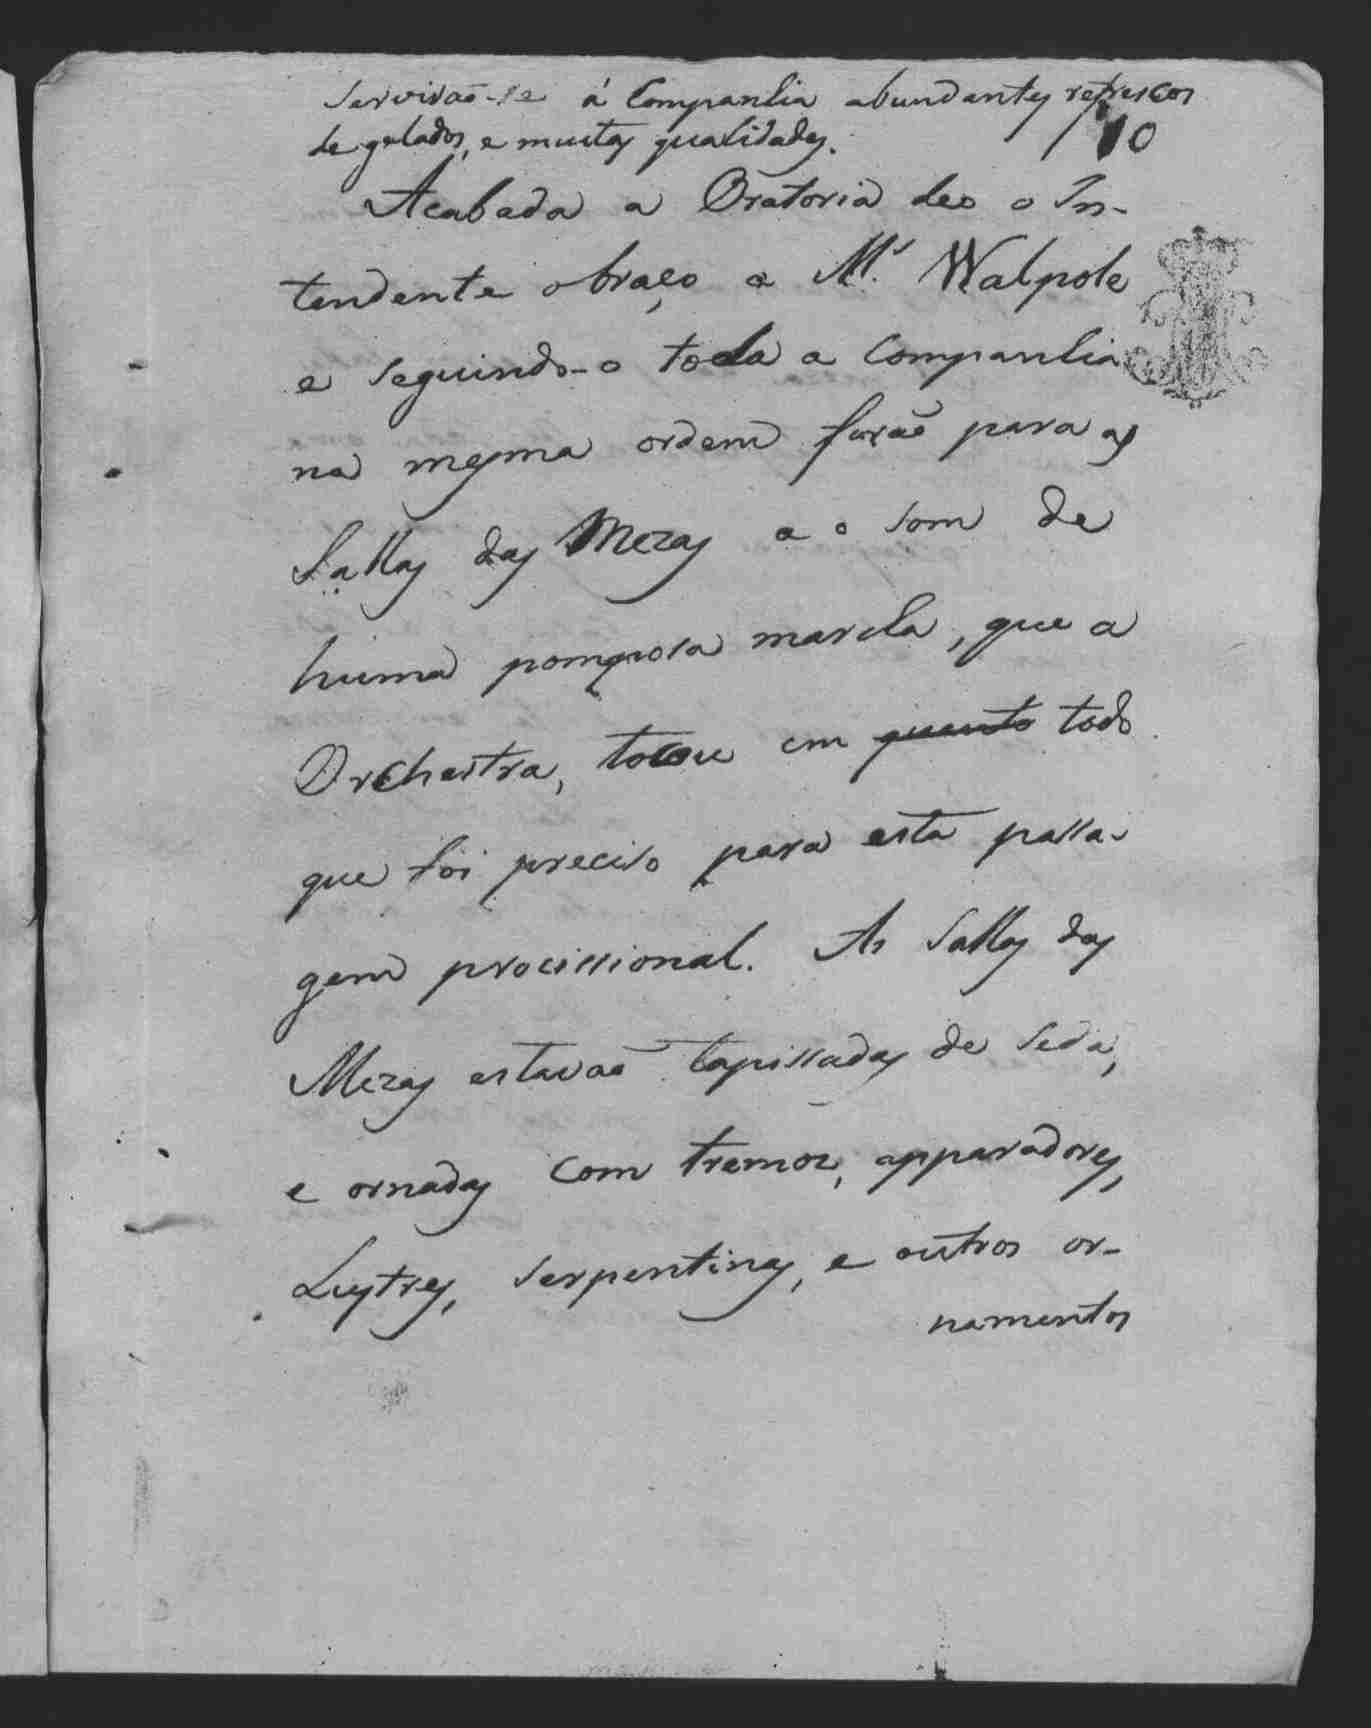 Servirão-se á Companhia abundantes refrescos
de gelados, e muitas qualidades.
10
Acabada a Oratoria deo o In-
tendente o braço a Mr. Walpole
e seguindo-o toda a Companhia
na mesma ordem forão para as
Sallas das Mezas a o som de
huma pomposa marcha, que a
Orchestra, tocou em quanto todo
que foi preciso para esta passa-
gem procissional. As Sallas das
Mezas estavão tapissadas de Seda,
e ornadas com tremoz, apparadores,
Lustres, Serpentinas, e outros or-
namentos